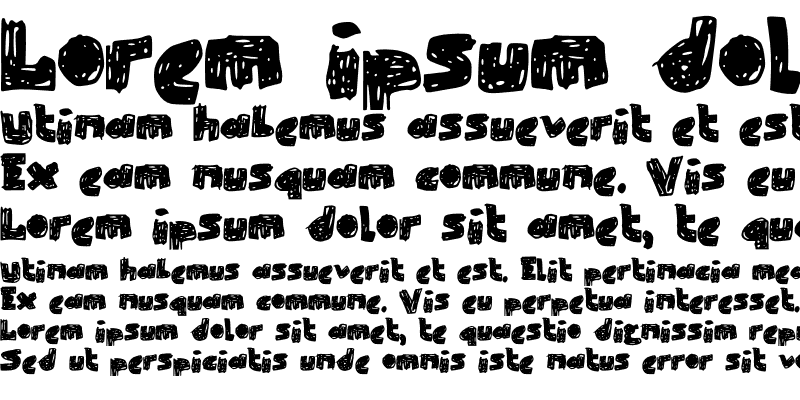 Lorem ipsum dol
Utinam habemus assueverit et est
Ex eam nusquam commune. Vis eu
Lorem ipsum dolor sit amet, te quo
Utinam habemus assueverit et est. Elit pertinacia mea
Ex eam nusquam commune. Vis eu perpetua interesset.
Lorem ipsum dolor sit amet, te quaestio dignissim repr
Sed ut perspiciatis unde omnis iste natus error sit vo